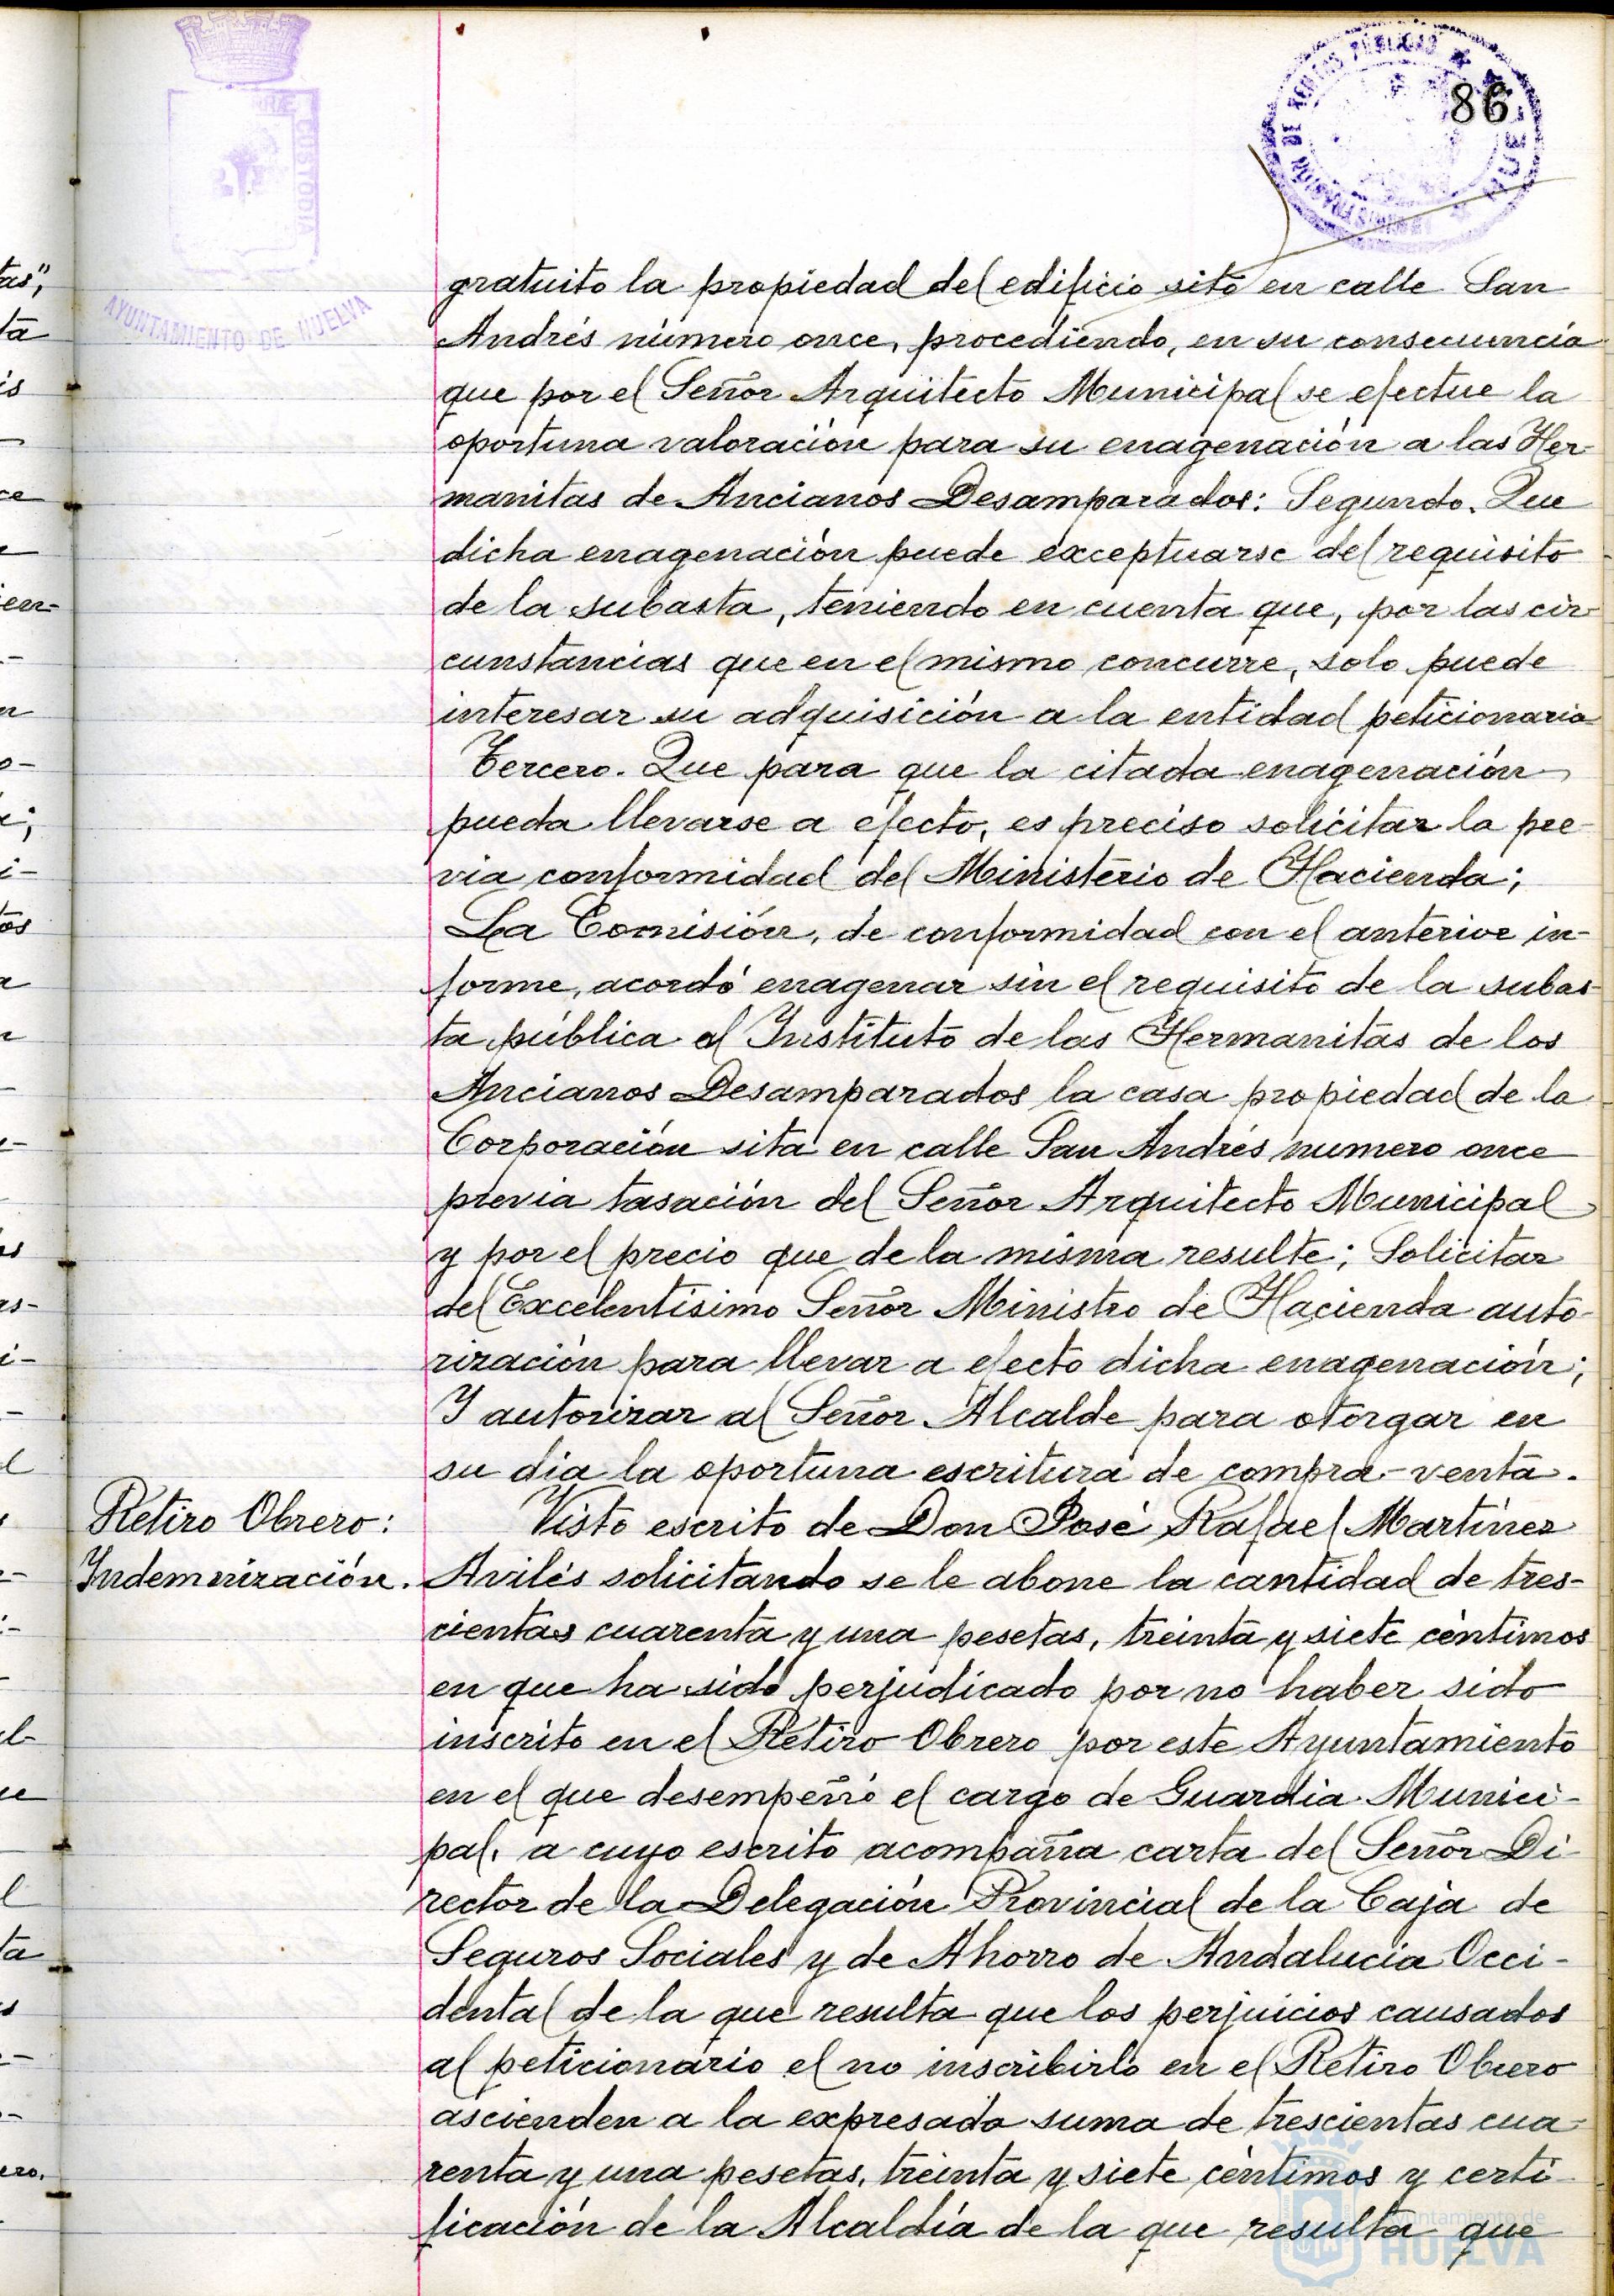 86
AYUNTAMIENTO DE HUELVA
gratuito la propiedad del edificio sito en calle San
Andrés número once, procediendo, en su consecuencia
que por el Señor Arquitecto Municipal se efectue la
oportuna valoración para su enagenación a las Her-
manitas de Ancianos Desamparados: Segundo. Que
dicha enagenación puede exceptuarse del requisito
de la subasta, teniendo en cuenta que, por las cir-
cunstancias que en el mismo concurre, solo puede
interesar su adquisición a la entidad peticionaria
Tercero. Que para que la citada enagenación
pueda llevarse a efecto, es preciso solicitar la pre-
via conformidad del Ministerio de Hacienda;
La Comisión, de conformidad con el anterior in-
forme, acordó enagenar sin el requisito de la subas-
ta pública al Instituto de las Hermanitas de los
Ancianos Desamparados la casa propiedad de la
Corporación sita en calle San Andrés numero once
previa tasación del Señor Arquitecto Municipal
y por el precio que de la misma resulte; Solicitar
del Excelentísimo Señor Ministro de Hacienda auto-
rización para llevar a efecto dicha enagenación;
Y autorizar al Señor Alcalde para otorgar en
su dia la oportuna escritura de compra-venta.
Retiro Obrero:
Indemnización.
Visto escrito de Don José Rafael Martínez
Avilés solicitando se le abone la cantidad de tres-
cientas cuarenta y una pesetas, treinta y siete céntimos
en que ha sido perjudicado por no haber sido
inscrito en el Retiro Obrero por este Ayuntamiento
en el que desempeñó el cargo de Guardia Munici-
pal, a cuyo escrito acompaña carta del Señor Di-
rector de la Delegación Provincial de la Caja de
Seguros Sociales y de Ahorro de Andalucia Occi-
dental de la que resulta que los perjuicios causados
al peticionario el no inscribirlo en el Retiro Obrero
ascienden a la expresada suma de trescientas cua-
renta y una pesetas, treinta y siete céntimos y certi-
ficación de la Alcaldía de la que resulta que
Ayuntamiento de
HUELVA